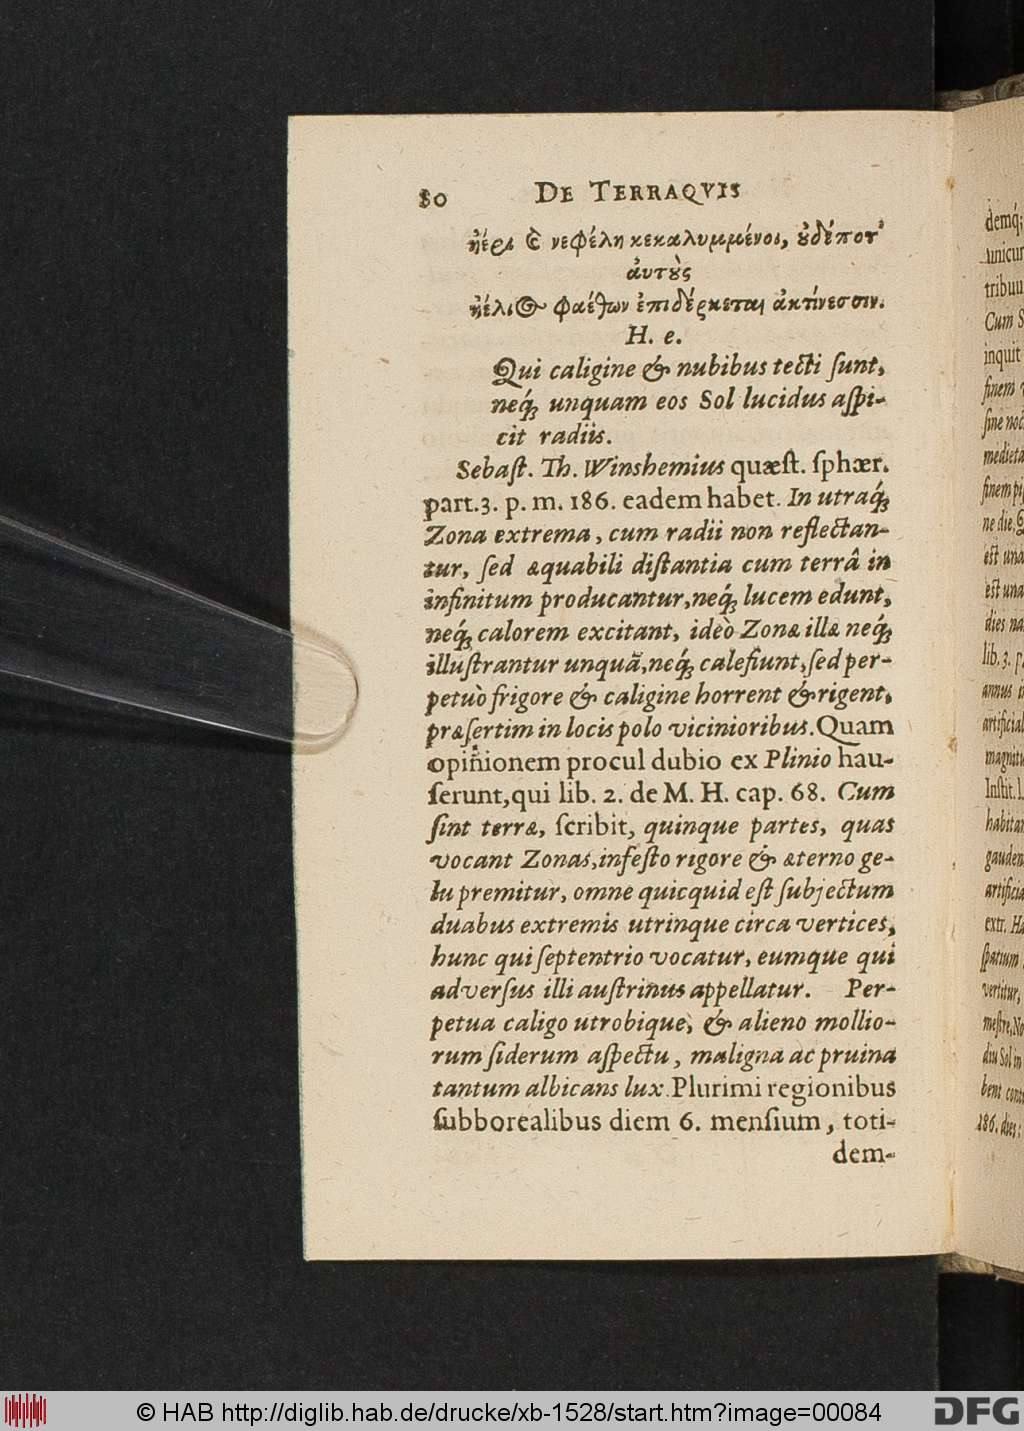 80 DE TERRAQVIS
ἠέρι ϗ νεφέλῃ κεκαλυμμένοι, ȣ̓δέποτ'
ἀυτοὺς
ἠέλιος φαέθων ἐπιδέρκεται ἀκτίνεσσιν.
H. e.
Qui caligine & nubibus tecti ſunt,
neq́; unquam eos Sol lucidus aſpi-
cit radiis.
Sebaſt. Th. Winshemius quæſt. ſphær.
part.3. p. m. 186. eadem habet. In utraq́;
Zona extrema, cum radii non reflectan-
tur, ſed æquabili diſtantia cum terrâ in
infinitum producantur, neq́; lucem edunt,
neq́; calorem excitant, ideò Zonæ illæ neq́;
illuſtrantur unquã, neq́; calefiunt, ſed per-
petuò frigore & caligine horrent & rigent,
præſertim in locis polo vicinioribus. Quam
opinionem procul dubio ex Plinio hau-
ſerunt, qui lib. 2. de M. H. cap. 68. Cum
ſint terræ, ſcribit, quinque partes, quas
vocant Zonas, infeſto rigore & æterno ge-
lu premitur, omne quicquid eſt ſubjectum
duabus extremis utrinque circa vertices,
hunc qui ſeptentrio vocatur, eumque qui
adverſus illi auſtrinus appellatur. Per-
petua caligo utrobique, & alieno mollio-
rum ſiderum aſpectu, maligna ac pruina
tantum albicans lux. Plurimi regionibus
ſubborealibus diem 6. menſium, toti-
dem-
demq́;
unicun
tribuu
Cum S
inquit
finem
ſine noc
medieta
finem pi
ne die.
eſt una
eſt una
dies na
lib. 3. p.
annus
artificial
magnitu
Inſtit. l.
habitan
gauden
artificia
extr. Ha
ſpatium
vertitur,
meſtre, No
diu Sol in
bent cont
186. dies;
© HAB http://diglib.hab.de/drucke/xb-1528/start.htm?image=00084
DFG